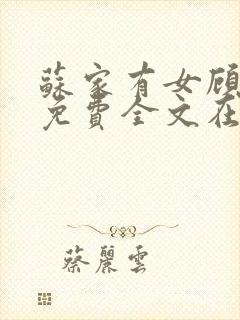 蘇家有女顾
免費全文在
蔡麗雲